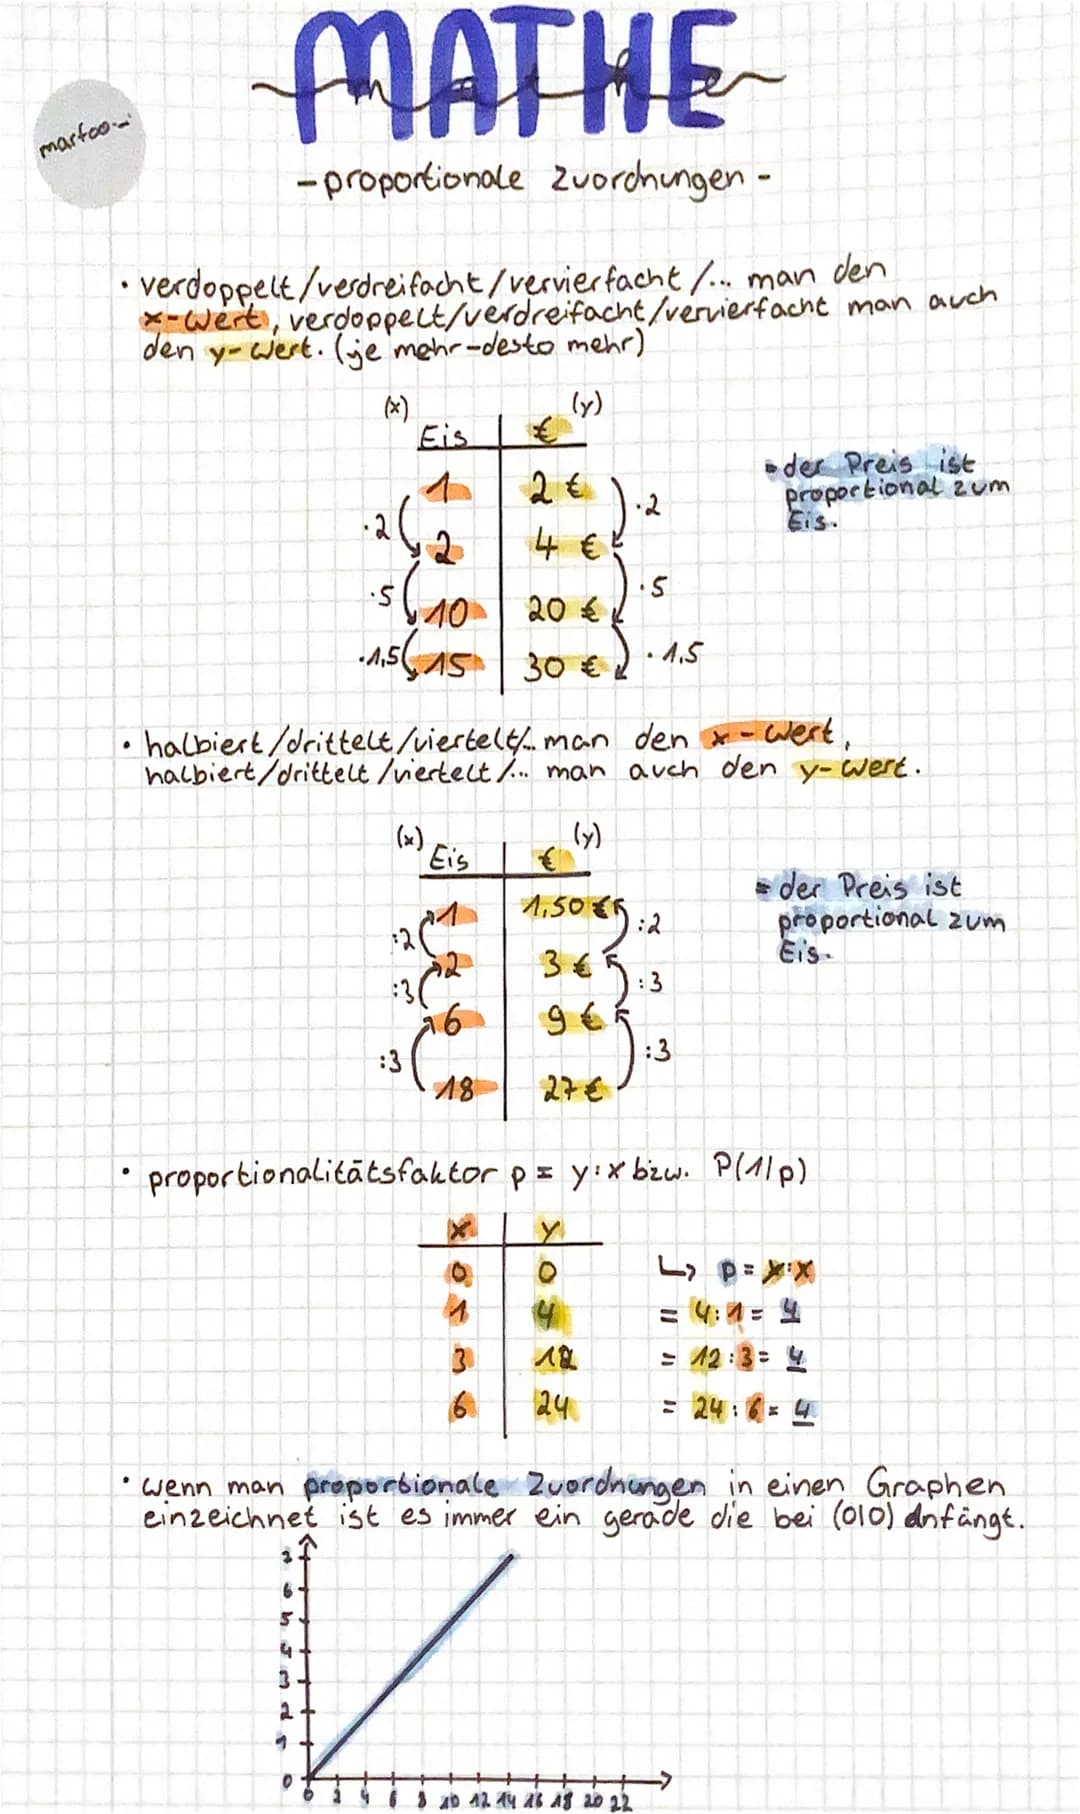 MATHE
mathe
marfoo._.
- proportionale Zuordnungen -
• verdoppelt/verdreifacht/vervierfacht/... man den
x-Wert, verdoppelt/verdreifacht/vervierfacht man auch
den y-Wert. (je mehr-desto mehr)
(x) (y)
Eis €
1 2 €
·2 ·2
2 4 €
·5 ·5
10 20 €
·1,5 ·1,5
15 30 €
der Preis ist
proportional zum
Eis.
• halbiert/drittelt/viertelt/... man den x-Wert,
halbiert/drittelt/viertelt/... man auch den y-Wert.
(x) (y)
Eis €
1 1,50 €
:2 :2
2 3 €
:3 :3
6 9 €
:3 :3
18 27 €
= der Preis ist
proportional zum
Eis.
• proportionalitätsfaktor p = y:x bzw. P(1|p)
x y
0 0 ↳ p = y:x
1 4 = 4:1 = 4
3 12 = 12:3 = 4
6 24 = 24:6 = 4
• wenn man proportionale Zuordnungen in einen Graphen
einzeichnet ist es immer ein gerade die bei (0|0) anfängt.
7
6
5
4
3
2
1
0
0 2 4 6 8 10 12 14 16 18 20 22